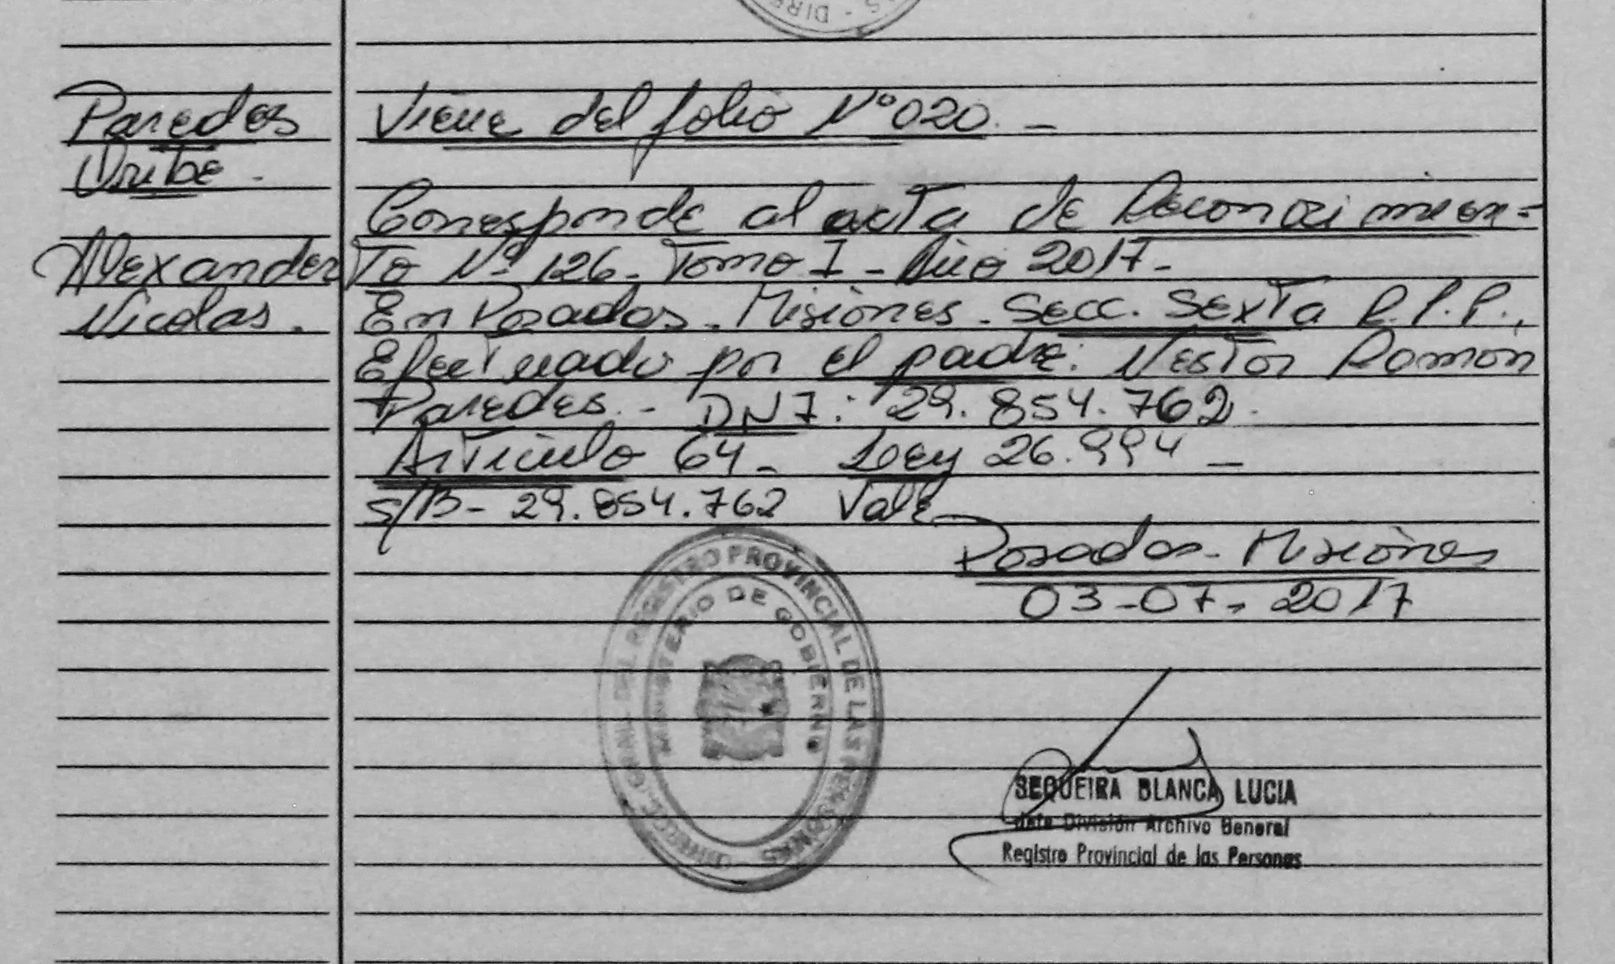 Paredes
Uribe.
Alexander
Nicolas.
Viene del folio Nº 020. -
Corresponde al acta de Reconocimien-
to Nº 126 - Tomo I - Año 2017 -
En Posadas - Misiones - Secc. Sexta R.P.P.,
Efectuado por el padre: Nestor Ramón
Paredes. - DNI: 29.854.762.
Artículo 64 - Ley 26.994 -
S/B - 29.854.762 Vale
Posadas - Misiones
03-07-2017
DIRECC. GRAL. DEL REGISTRO PROVINCIAL DE LAS PERSONAS
MINISTERIO DE GOBIERNO
SEQUEIRA BLANCA LUCIA
Jefe División Archivo General
Registro Provincial de las Personas